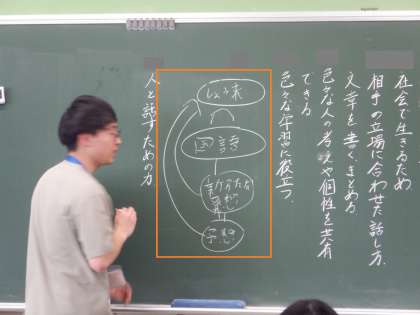 社会で生きるため
相手の立場に合わせた話し方.
文章を書く、まとめ方
色々な人の考えや個性を共有
できる
色々な学習に役立つ.
国語
新たな
人と話すための力.